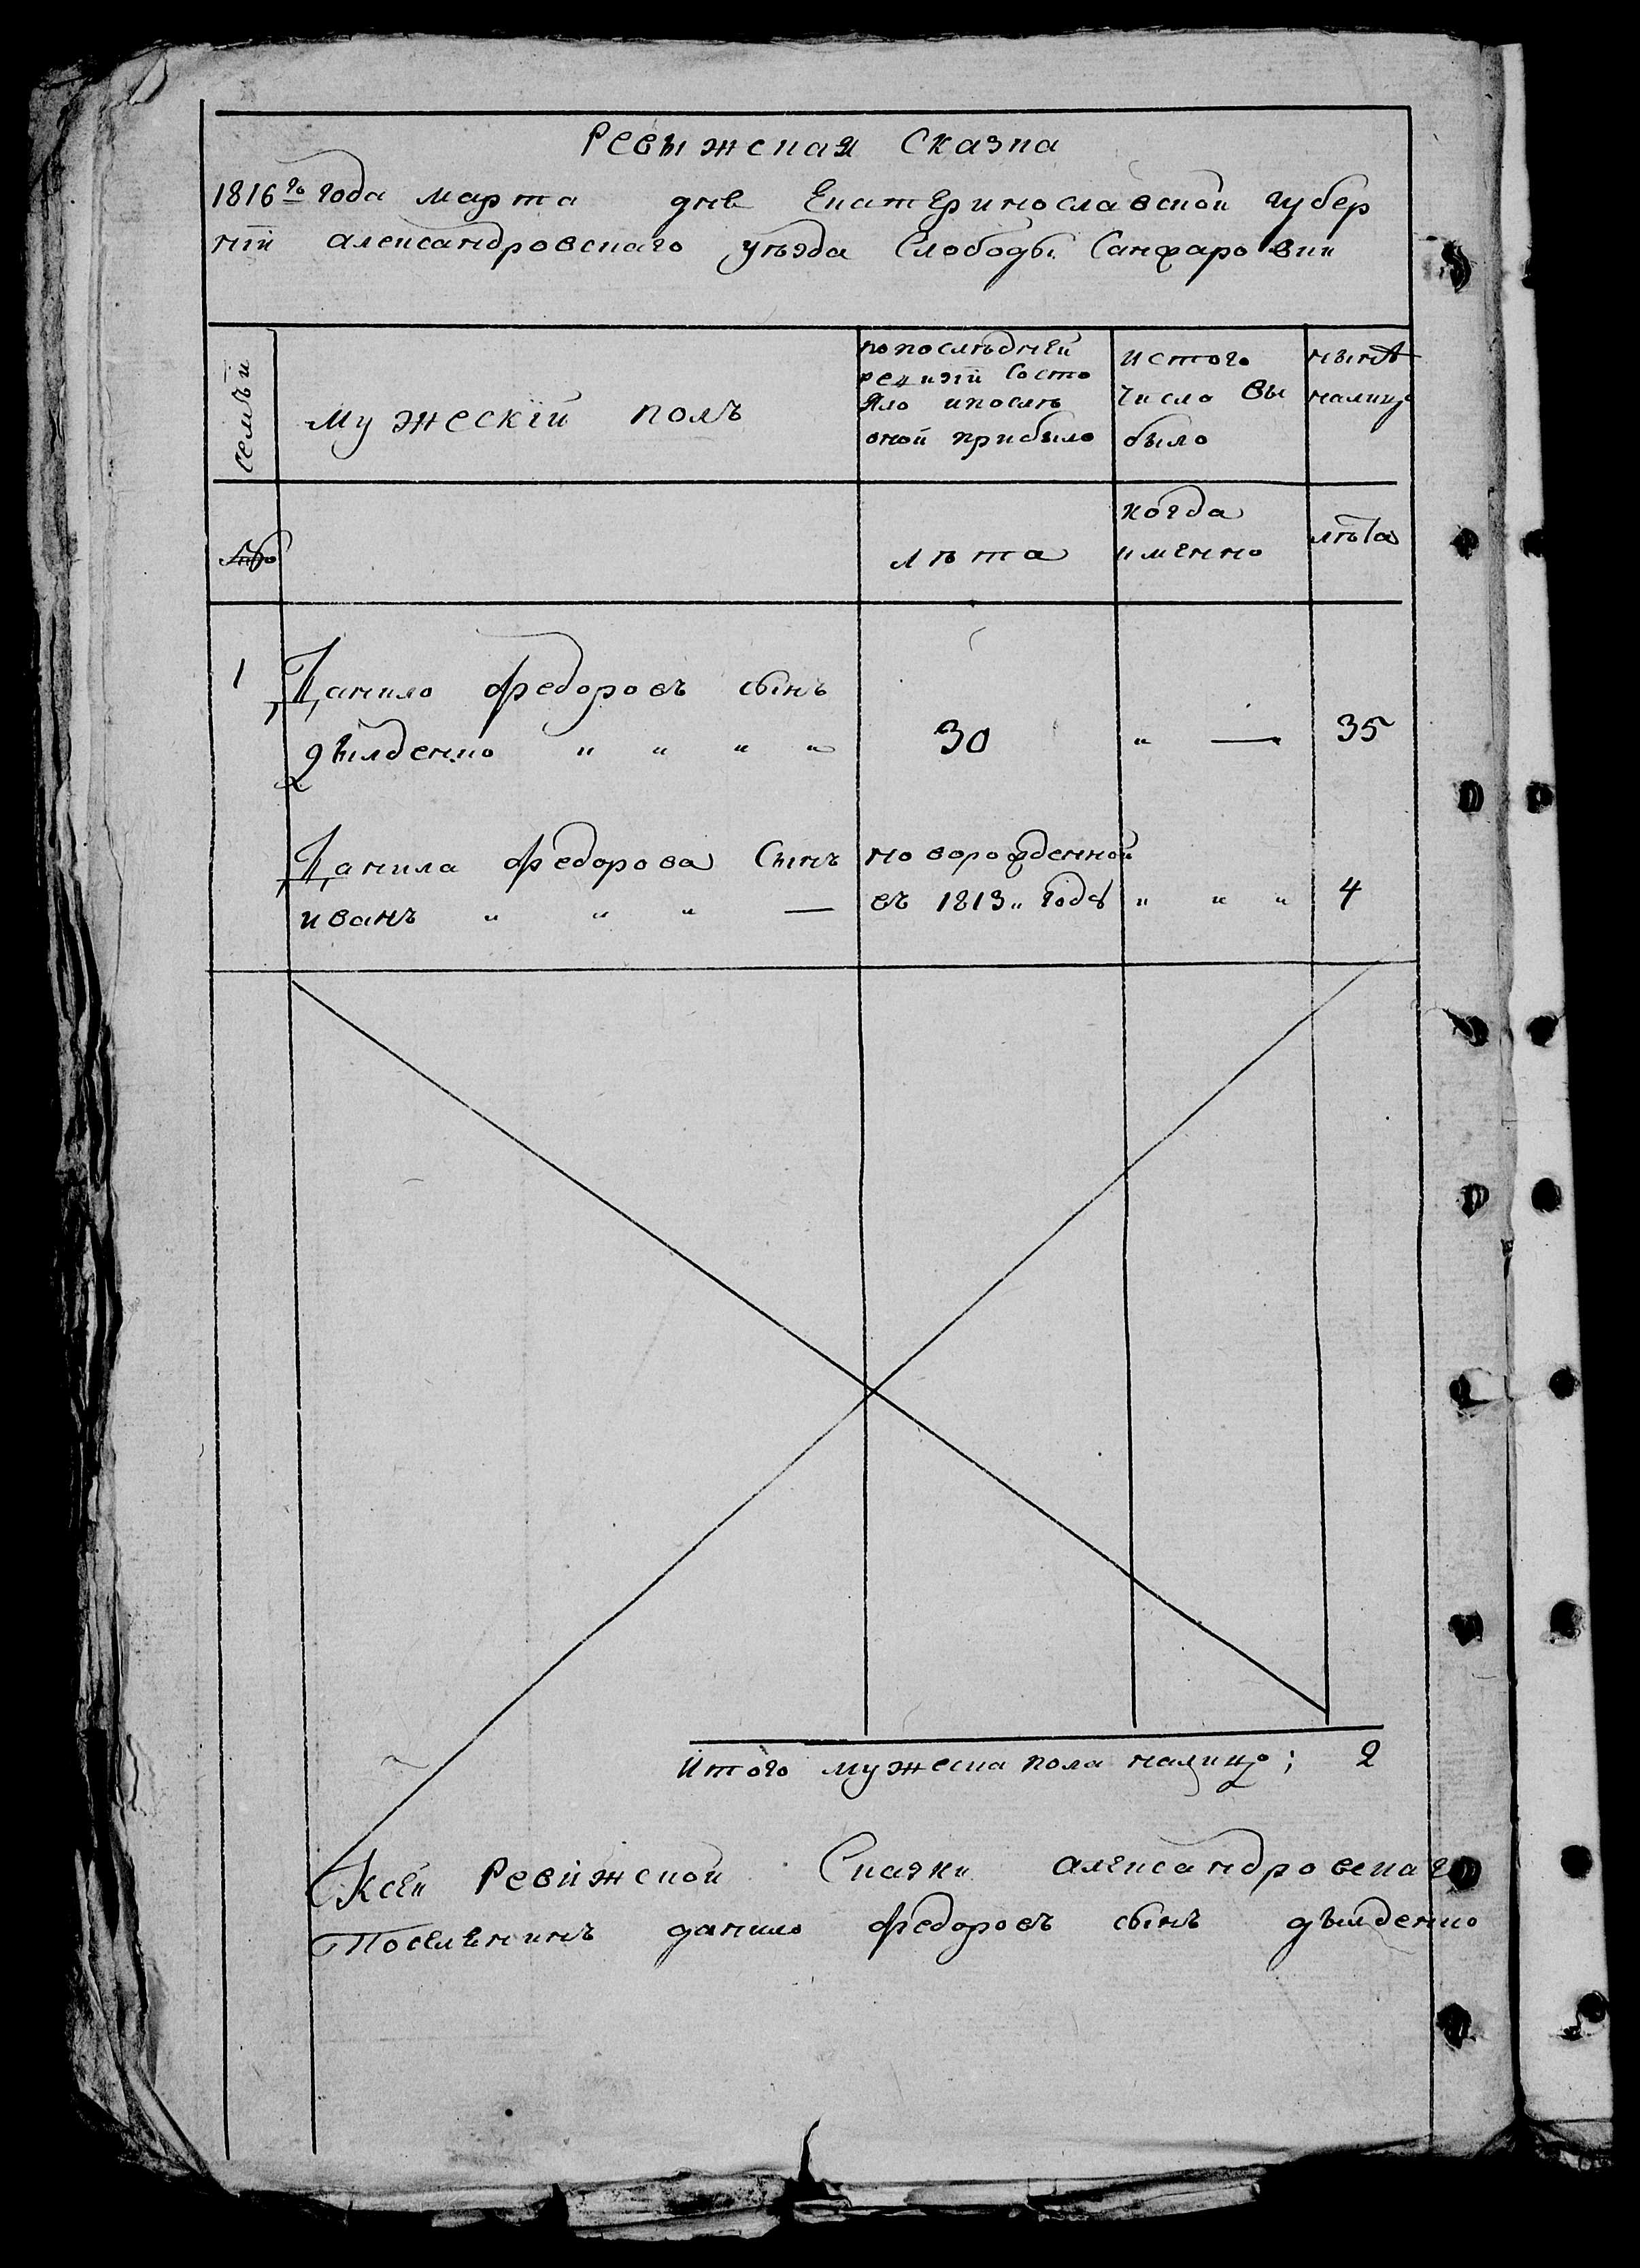 Ревыжская Сказка
1816го года марта дне Екатеринославской губер
нїи александровскаго уѣзда Слободы Санжаровки
семъи
мужескїй полъ
попослѣдней
ревизїи Состо
Яло ипослѣ
оной прибыло
истого
числа вы
было
нынѣ
налицо
№
лѣта
когда
именно
лѣта
1
Данило федоровъ сынъ
дѣилденко " " " " 30 " — 35
Данила федорова Сынъ новорожденной
иванъ " " " — въ 1813 " годѣ " " " 4
Итого мужеска пола налицо; 2
Ксей Ревижской Скаски александровска
Поселенинъ данило федоровъ сынъ